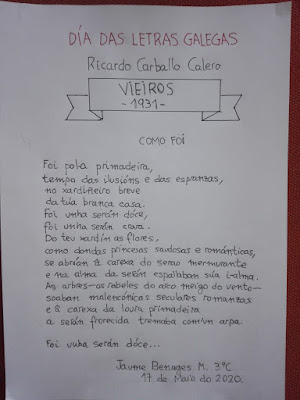 DÍA DAS LETRAS GALEGAS
Ricardo Carballo Calero
VIEIROS
-1931-
COMO FOI
Foi pola primadeira,
tempo das ilusións e das espranzas,
no xardiñeiro breve
da túa branca casa.
Foi unha serán dóce,
foi unha serán crara.
Do teu xardín as flores,
como dondas princesas saudosas e románticas,
se abrían â carexa do serao mermurante
e na alma da serán espallaban súa i-alma.
As arbres-os rabeles do arco meigo do vento-
soaban malencónicas seculares romanzas
e â carexa da loura primadeira
a serán frorecida tremaba com'un arpa.
Foi unha serán dóce...
Jaume Benages M. 3ºC
17 de Maio do 2020.